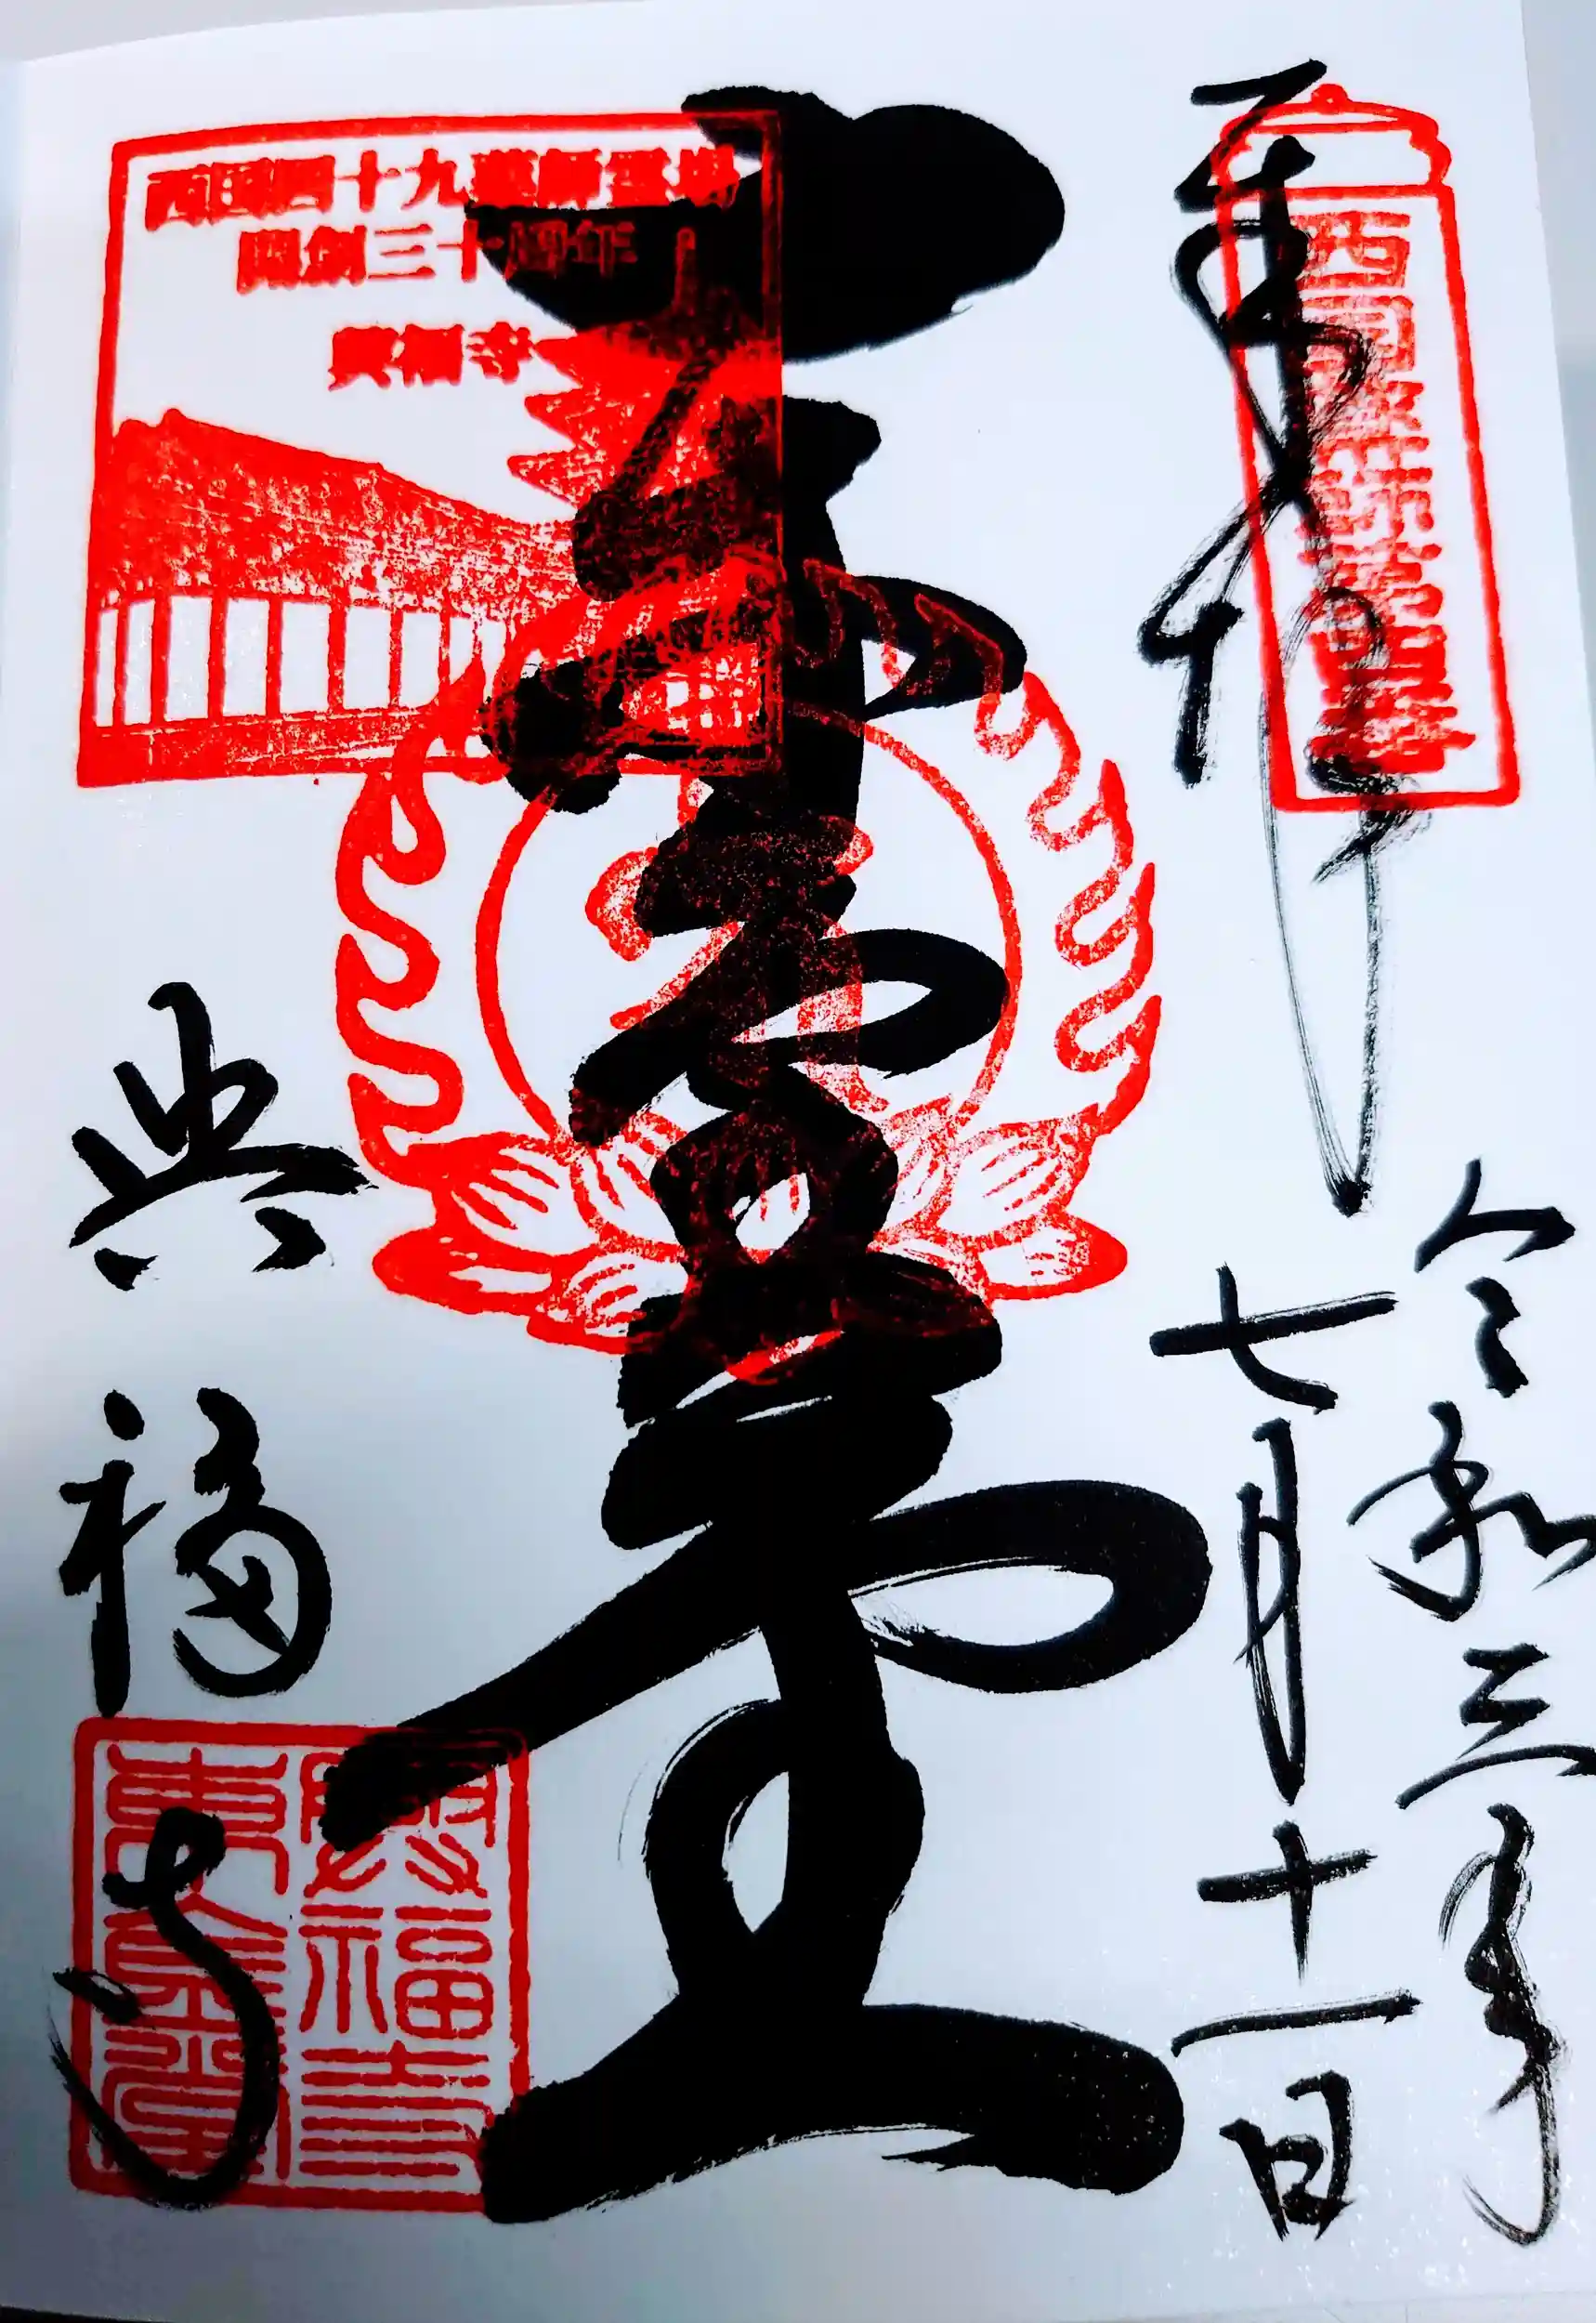 奉拝
西国薬師第四番
令和三年
七月十一日
西国四十九薬師霊場
開創三十周年
興福寺
興福寺
興福寺
東金堂